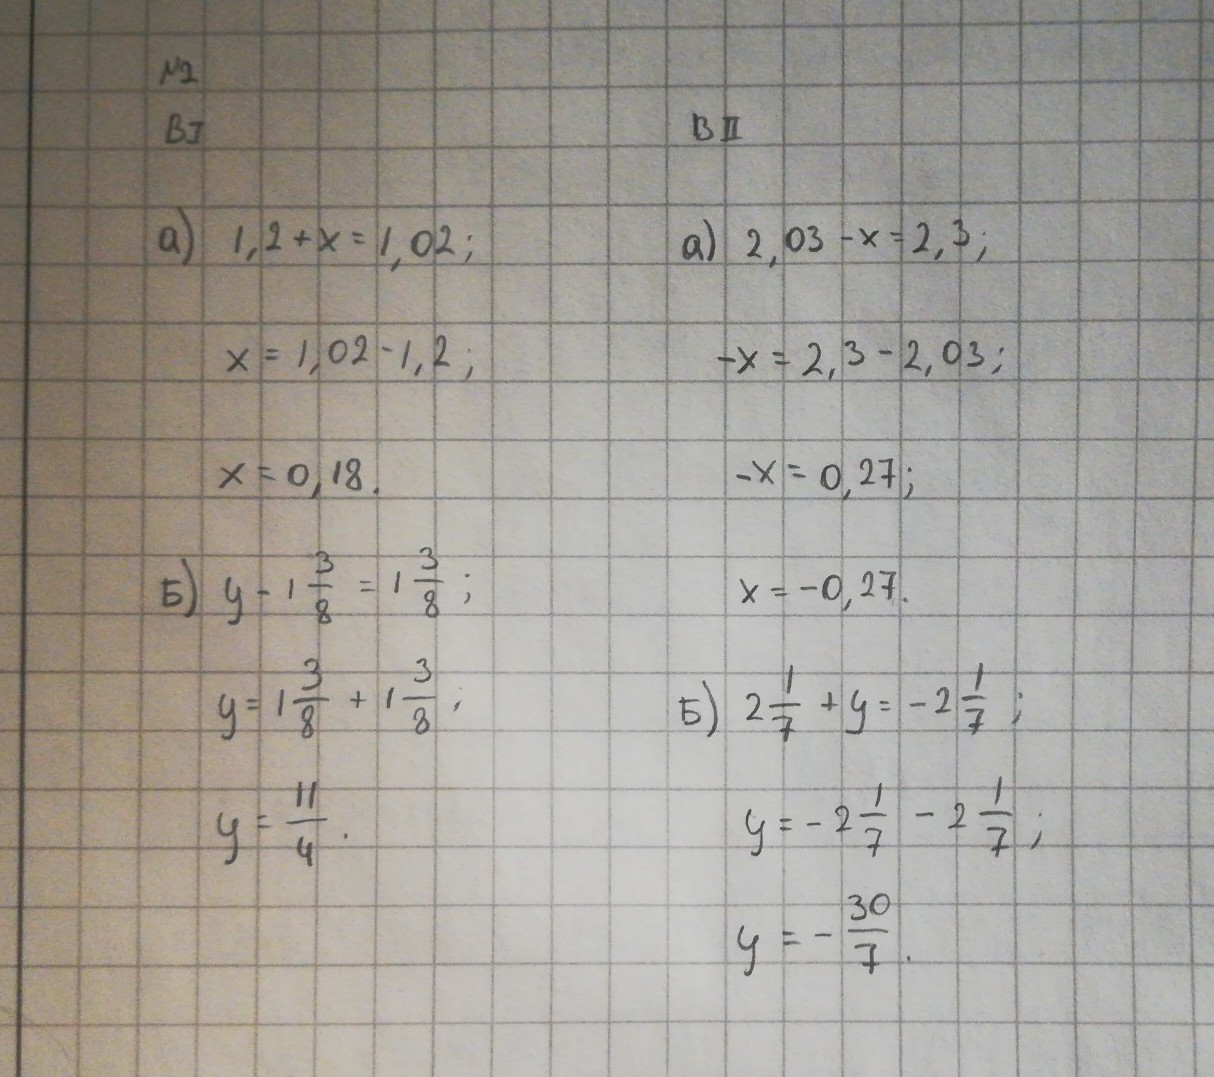 №2
В I
а) 1,2 + x = 1,02;
x = 1,02 - 1,2;
x = 0,18.
Б) y - 1 3/8 = 1 3/8;
y = 1 3/8 + 1 3/8;
y = 11/4.
В II
а) 2,03 - x = 2,3;
-x = 2,3 - 2,03;
-x = 0,27;
x = -0,27.
Б) 2 1/7 + y = -2 1/7;
y = -2 1/7 - 2 1/7;
y = -30/7.